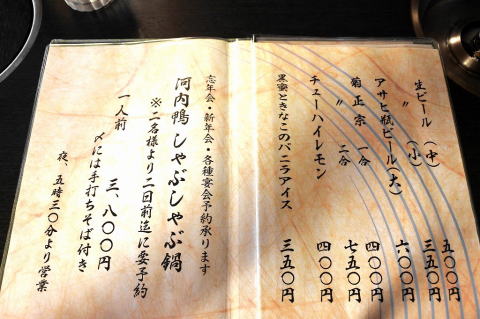 生ビール(中) 五〇〇円
〃 (小) 三五〇円
アサヒ瓶ビール(大) 六〇〇円
菊正宗 一合 四〇〇円
〃 二合 七五〇円
チューハイレモン 四〇〇円
黒蜜ときなこのバニラアイス 三五〇円
忘年会・新年会・各種宴会予約承ります
河内鴨しゃぶしゃぶ鍋
※二名様より二日前迄に要予約
一人前 三、八〇〇円
〆には手打ちそば付き
夜、五時三〇分より営業